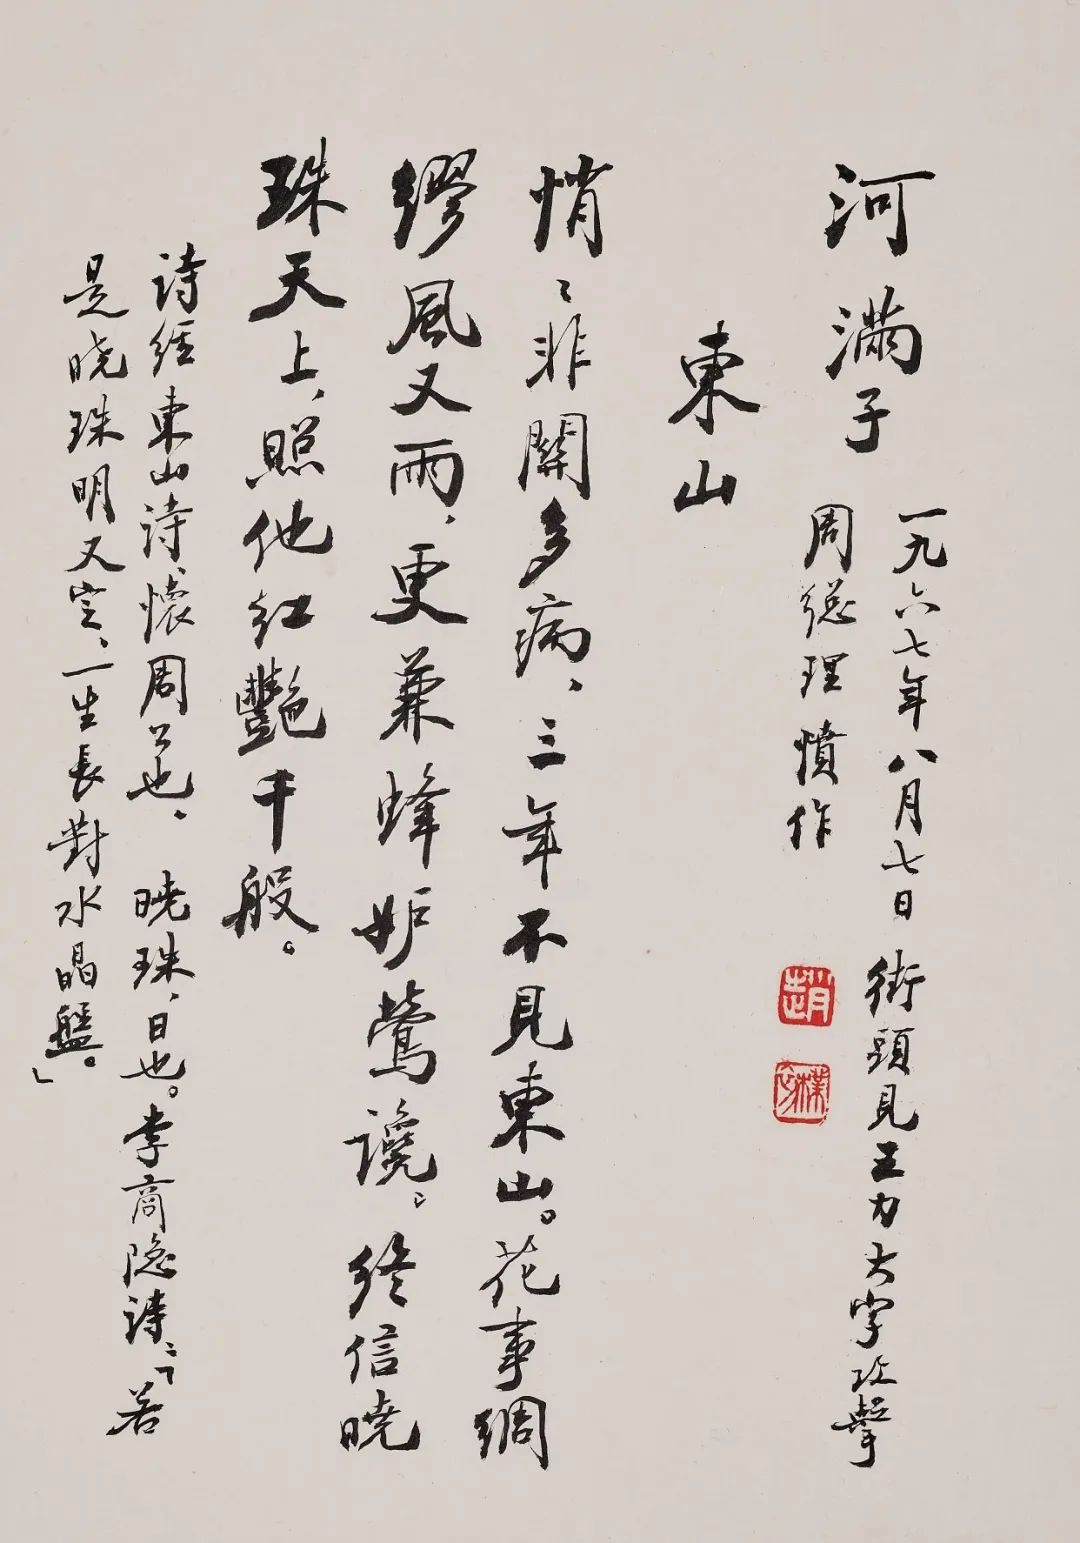 河滿子
一九六七年八月七日街頭見王力大字攻擊
周總理憤作
趙
樸初
東山
悄〻非關多病、三年不見東山。花事綢
繆風又雨、更兼蜂妒鶯讒；終信曉
珠天上、照他紅豔千般。
詩經東山詩、懷周公也。曉珠、日也。李商隱詩：「若
是曉珠明又定、一生長對水晶盤。」